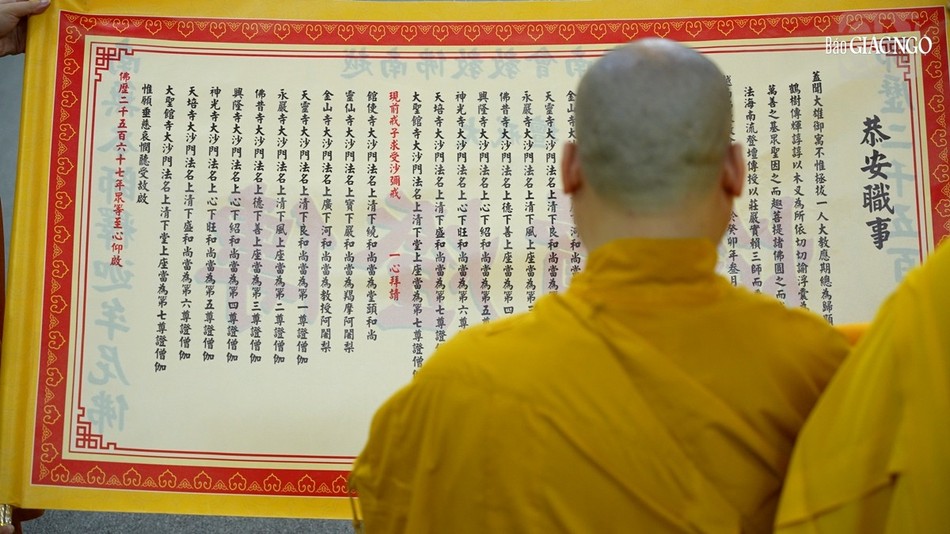 Báo GIÁC NGỘ
恭安職事
蓋聞大雄御寓不惟拯拔一人大教應期總為歸
鶴樹傳輝諄諄以木叉為所依切切諭浮囊為
萬善之基眾聖因之而趣菩提諸佛圓之而
法海南流登壇傳授以莊嚴實賴三師而
於癸卯年叁月
金
天靈寺大沙門法名上清下
永嚴寺大沙門法名上清下風
佛昔寺大沙門法名上德下善上座當為第三
興隆寺大沙門法名上心下紹和尚當為第四
神光寺大沙門法名上心下旺和尚當為第五
天培寺大沙門法名上清下盛和尚當為第六尊證
大聖館寺大沙門法名上清下堂上座當為第七尊證僧
現前戒子求受沙彌戒 一心拜請
館使寺大沙門法名上清下繞和尚當為堂頭和尚
靈仙寺大沙門法名上寶下嚴和尚當為羯摩阿闍梨
金山寺大沙門法名上廣下河和尚當為教授阿闍梨
天靈寺大沙門法名上清下良和尚當為第一尊證僧伽
永嚴寺大沙門法名上清下風上座當為第二尊證僧伽
佛昔寺大沙門法名上德下善上座當為第三尊證僧伽
興隆寺大沙門法名上心下紹和尚當為第四尊證僧伽
神光寺大沙門法名上心下旺和尚當為第五尊證僧伽
天培寺大沙門法名上清下盛和尚當為第六尊證僧伽
大聖館寺大沙門法名上清下堂上座當為第七尊證僧伽
惟願垂慈哀憫聽受故啟
佛曆二千五百六十七年眾等至心仰啟